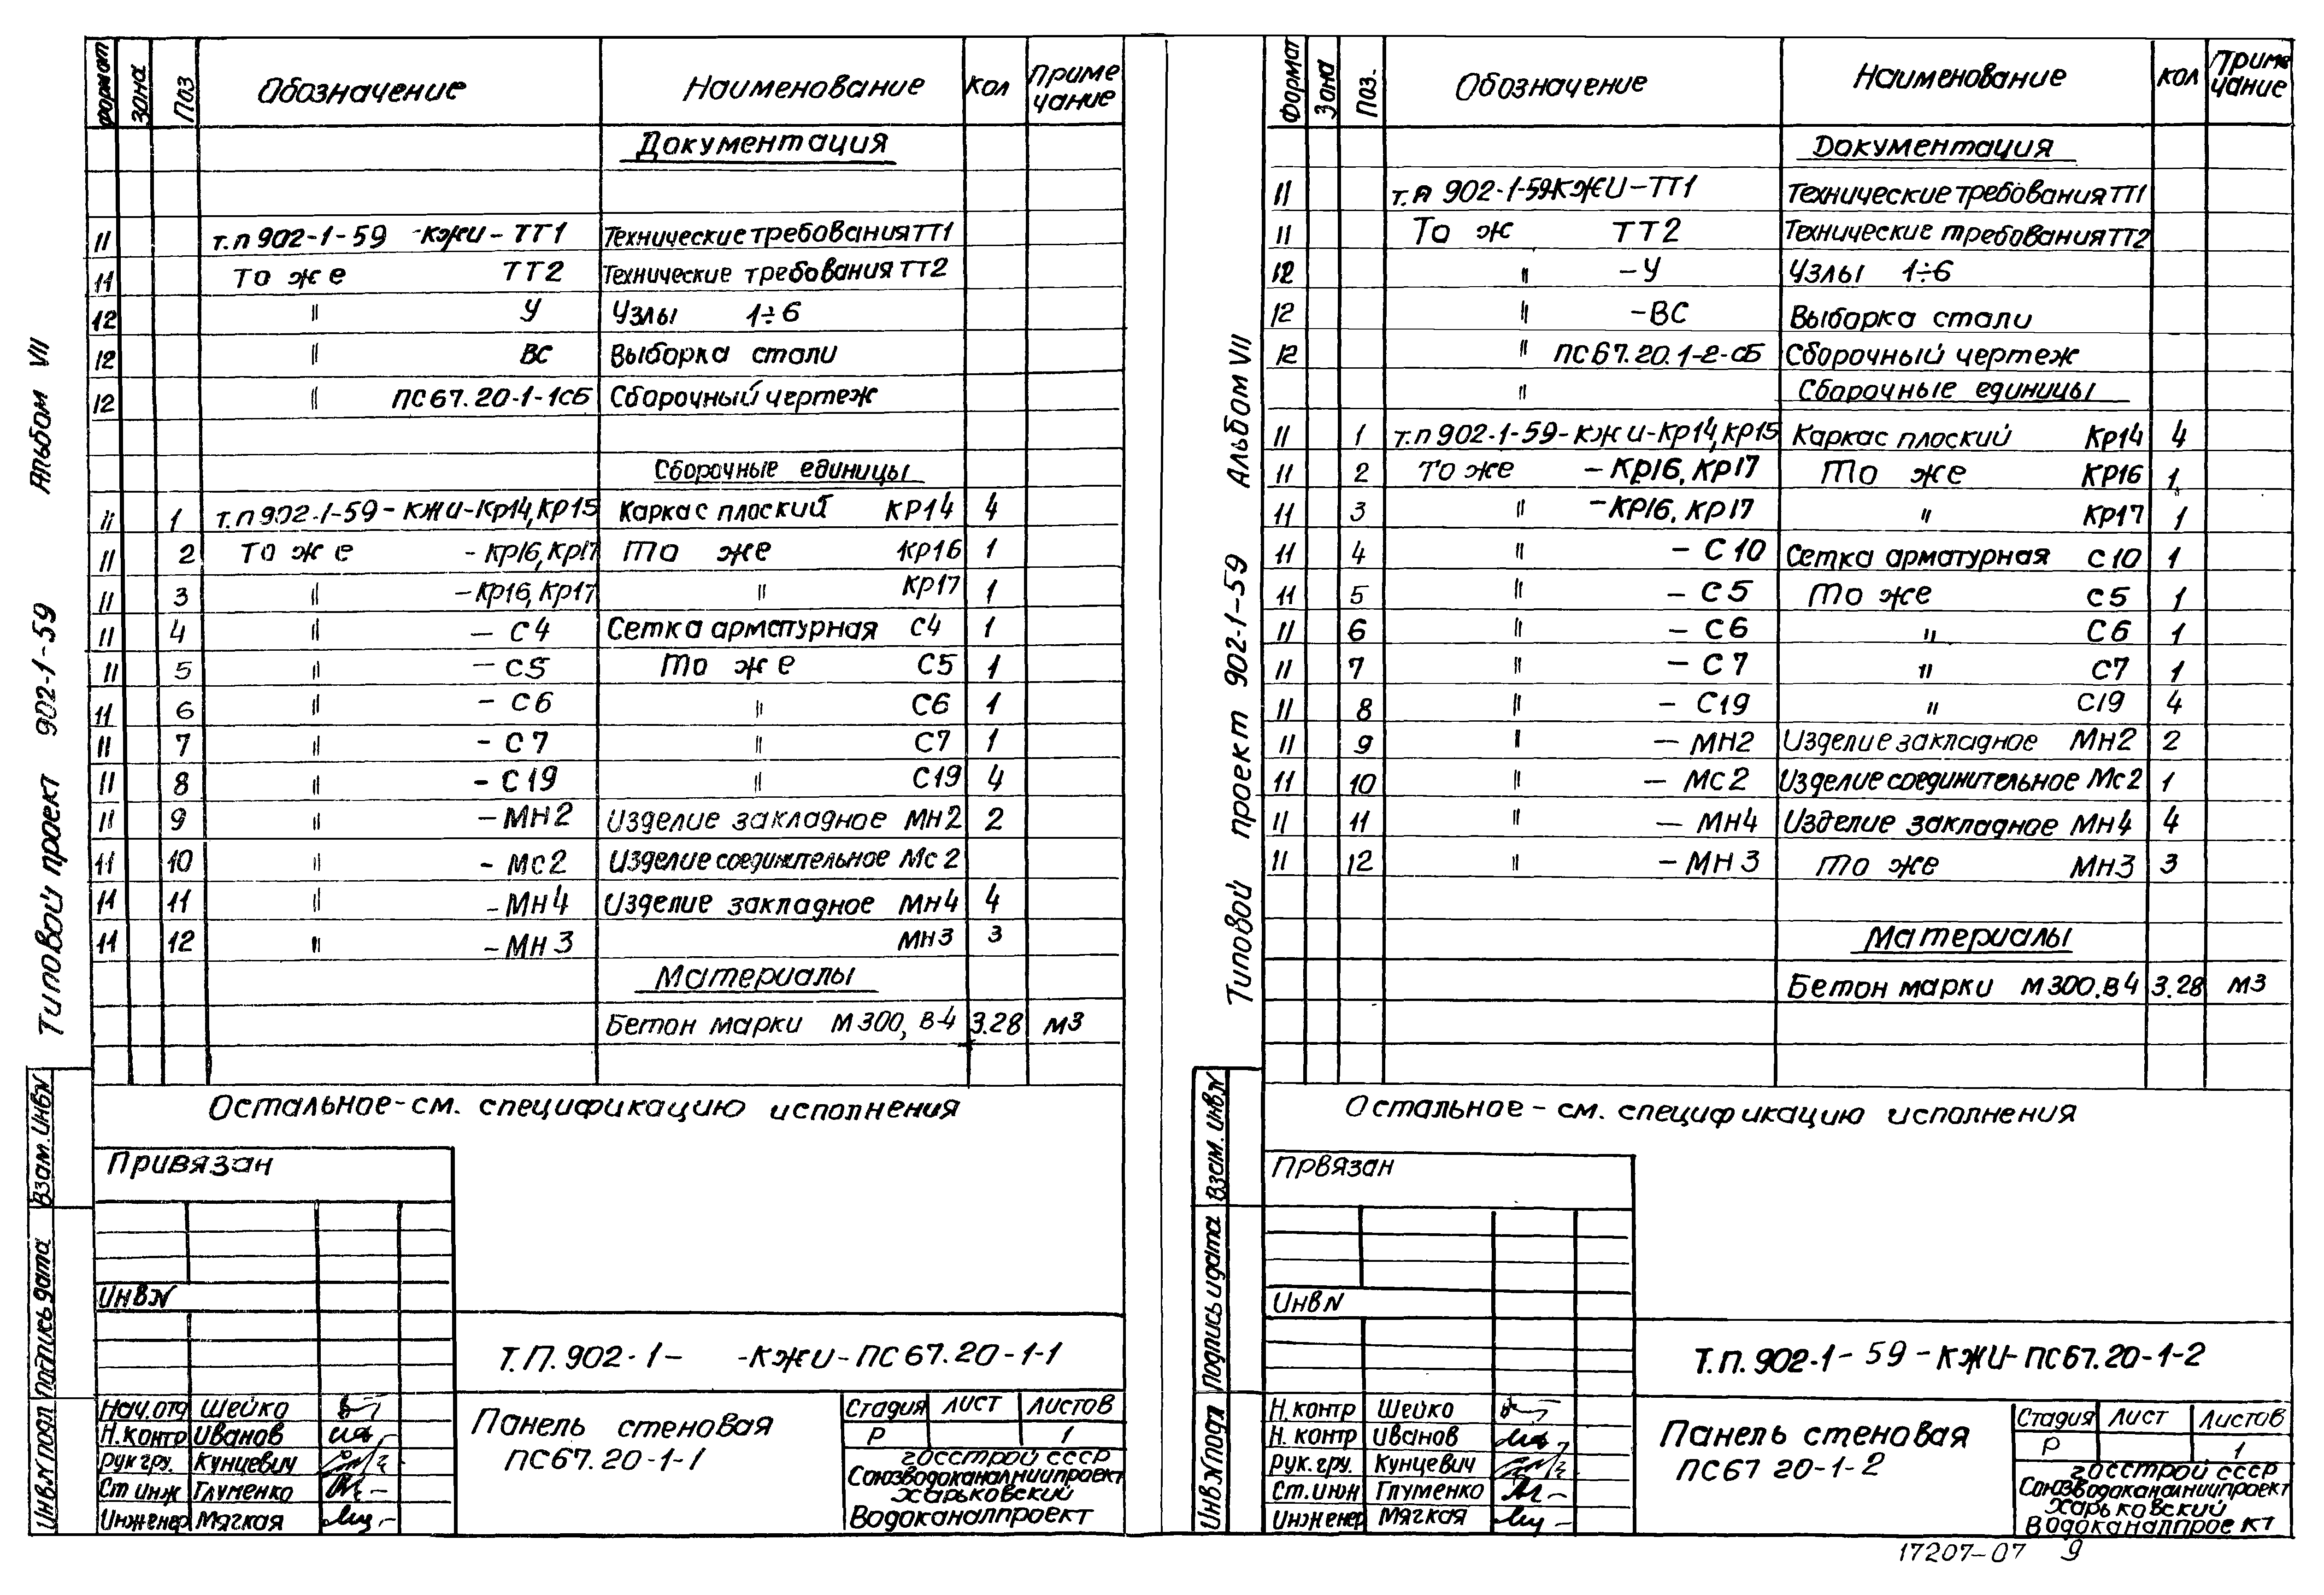 формат Зона Поз Обозначение Наименование Кол Приме чание
Документация
11 т.п 902-1-59 -КЖИ-ТТ1 Технические требования ТТ1
11 То же ТТ2 Технические требования ТТ2
12 " У Узлы 1÷6
12 " ВС Выборка стали
12 " ПС67.20-1-1СБ Сборочный чертеж
Сборочные единицы
11 1 т.п 902-1-59-КЖИ-Кр14,Кр15 Каркас плоский КР14 4
11 2 То же -Кр16,Кр17 То же Кр16 1
11 3 " -Кр16,Кр17 " Кр17 1
11 4 " - С4 Сетка арматурная С4 1
11 5 " - С5 То же С5 1
11 6 " - С6 " С6 1
11 7 " - С7 " С7 1
11 8 " - С19 " С19 4
11 9 " - МН2 Изделие закладное Мн2 2
11 10 " - Мс2 Изделие соединительное Мс2
11 11 " - Мн4 Изделие закладное Мн4 4
11 12 " - Мн3 Мн3 3
Материалы
Бетон марки М300, В-4 3.28 м3
Остальное-см. спецификацию исполнения
Альбом VII
Типовой проект 902-1-59
Взам.инвN
Подпись дата
ИнвN подл
Привязан
ИнвN
Т.П.902-1- -КЖИ-ПС67.20-1-1
Нач.отд Шейко
Н.контр Иванов
Рук гру. Кунцевич
Ст инж Глуменко
Инженер Мягкая
Панель стеновая
ПС67.20-1-1
Стадия Лист Листов
Р 1
госстрой ссср
Союзводоканалниипроект
харьковский
Водоканалпроект
Формат Зона Поз. Обозначение Наименование Кол Приме чание
Документация
11 т.п 902-1-59КЖИ-ТТ1 Технические требования ТТ1
11 То ж ТТ2 Технические требования ТТ2
12 " -У Узлы 1÷6
12 " -ВС Выборка стали
12 " ПС67.20.1-2-сБ Сборочный чертеж
" Сборочные единицы
11 1 т.п 902-1-59-КЖИ-Кр14,Кр15 Каркас плоский Кр14 4
11 2 То же -Кр16,Кр17 То же Кр16 1
11 3 " -Кр16,Кр17 " Кр17 1
11 4 " - С10 Сетка арматурная С10 1
11 5 " - С5 То же С5 1
11 6 " - С6 " С6 1
11 7 " - С7 " С7 1
11 8 " - С19 " С19 4
11 9 " - МН2 Изделие закладное Мн2 2
11 10 " - Мс2 Изделие соединительное Мс2 1
11 11 " - Мн4 Изделие закладное Мн4 4
11 12 " - МН3 То же Мн3 3
Материалы
Бетон марки М300.В4 3.28 м3
Остальное-см. спецификацию исполнения
Альбом VII
Типовой проект 902-1-59
Взам. инвN
Подпись и дата
ИнвN подл
Првязан
ИнвN
Т.П.902-1-59-КЖИ-ПС67.20-1-2
Н.контр Шейко
Н.контр Иванов
Рук.гру. Кунцевич
Ст.инж Глуменко
Инженер Мягкая
Панель стеновая
ПС67 20-1-2
Стадия Лист Листов
Р 1
госстрой ссср
Союзводоканалниипроект
харьковский
Водоканалпроект
17207-07 9